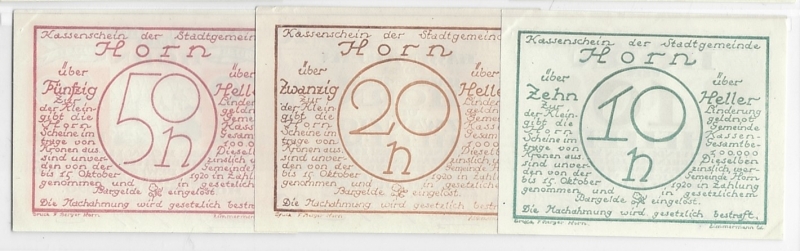 Kassenschein der Stadtgemeinde
Horn
über über
Fünfzig Heller
50 h
Zur Linderung
der Klein- geldnot
gibt die Gemeinde
Horn Kassen
Scheine im Gesamtbe
trage von 50000
Kronen aus Dieselben
sind unver zinslich u.
den von der Gemeinde
bis 15. Oktober 1920 in Zahlung
genommen und in gesetzlichem
Bargelde eingelöst.
Die Nachahmung wird gesetzlich bestraft.
Druck F. Berger Horn.
Kassenschein der Stadtgemeinde
Horn
über über
Zwanzig Heller
20 h
Zur Linderung
der Klein- geldnot
gibt die Gemeinde
Horn Kassen
Scheine im Gesamtbe
trage von 50000
Kronen aus Dieselben
sind unver zinslich u.
den von der Gemeinde
bis 15. Oktober 1920 in Zahlung
genommen und in gesetzlichem
Bargelde eingelöst.
Die Nachahmung wird gesetzlich bestraft.
Druck F. Berger Horn.
Kassenschein der Stadtgemeinde
Horn
über über
Zehn Heller
10 h
Zur Linderung
der Klein- geldnot
gibt die Gemeinde
Horn Kassen
Scheine im Gesamtbe
trage von 50000
Kronen aus Dieselben
sind unver zinslich u.wer-
den von der Gemeinde Horn
bis 15. Oktober 1920 in Zahlung
genommen und in gesetzlichem
Bargelde eingelöst.
Die Nachahmung wird gesetzlich bestraft.
Druck F. Berger Horn.